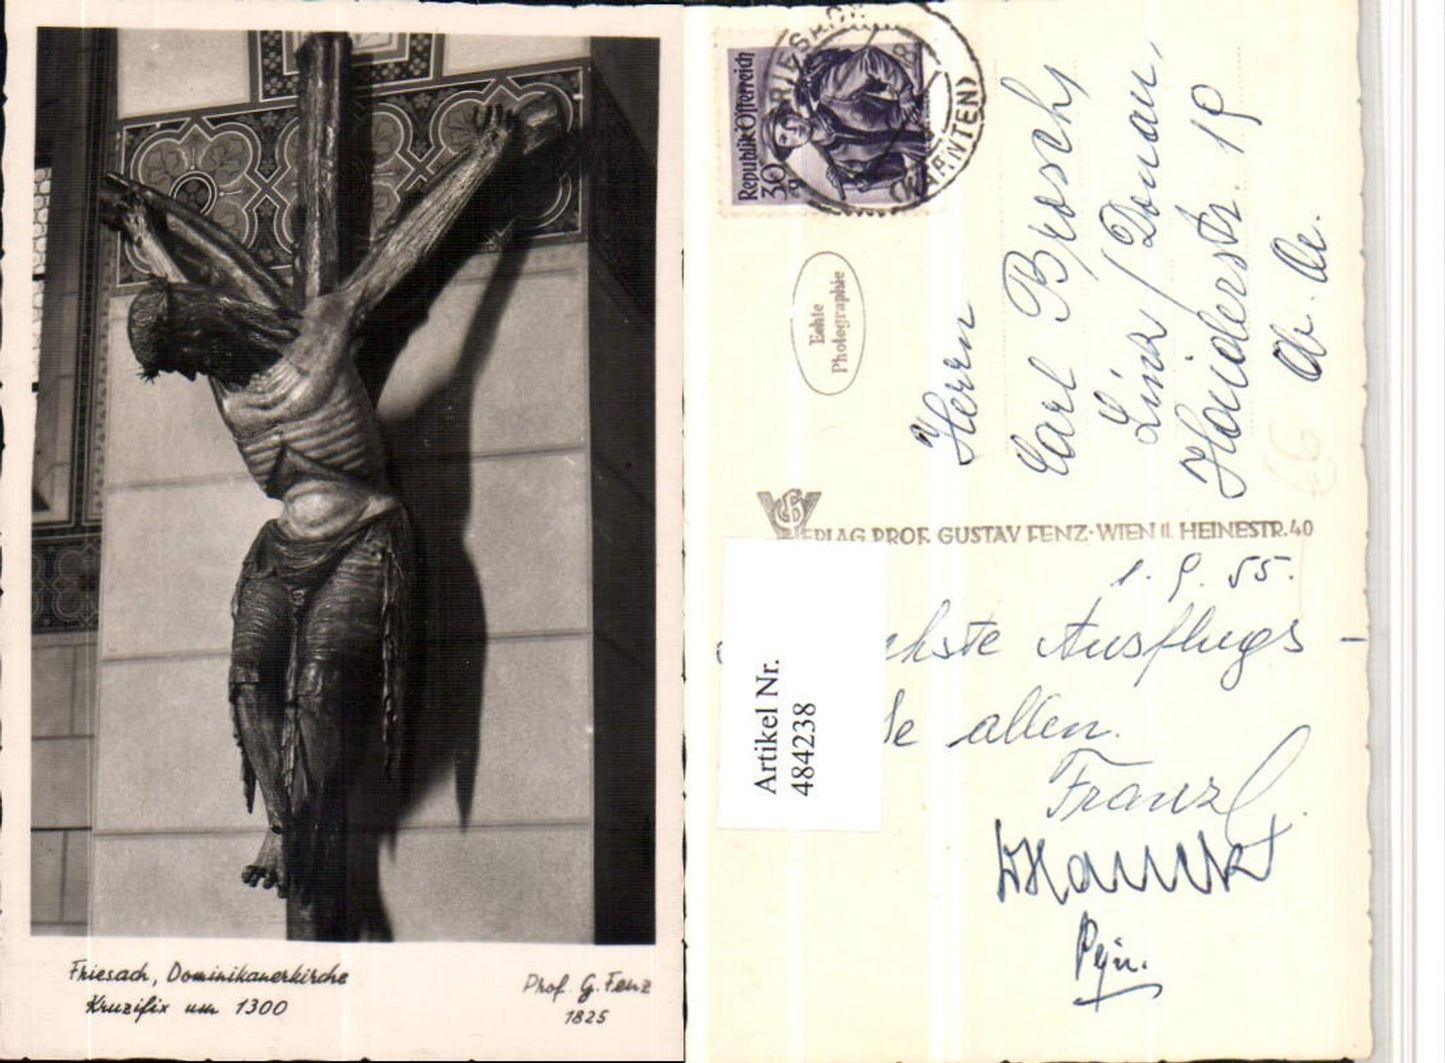 Friesach, Dominikanerkirche
Kruzifix um 1300
Prof. G. Fenz
1825
Republik Österreich
30 g
(KÄRNTEN)
Echte
Photographie
Herrn
Carl Brosch,
Linz/Donau,
Haiderstr. 19
Ob. Ö.
VERLAG PROF. GUSTAV FENZ·WIEN II. HEINESTR.40
1. 9. 55.
Ausflugs-
allen.
Franz
Artikel Nr.
484238